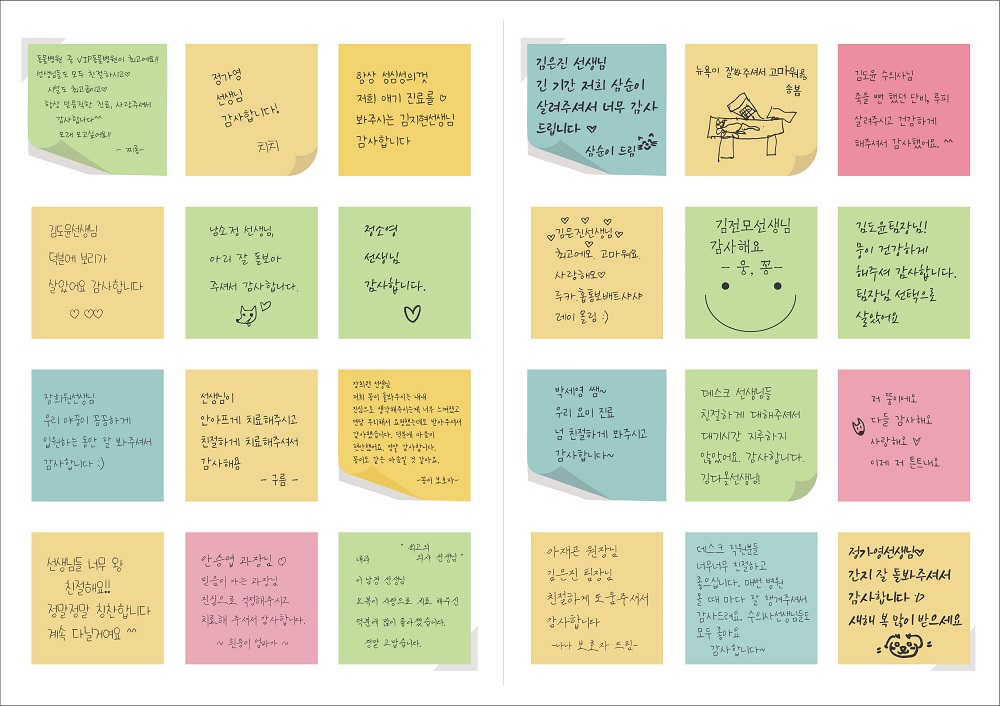 동물병원 중 VIP동물병원이 최고에요!!
선생님들도 모두 친절하시고♡
시설도 최고급이고♡
항상 믿음직한 진료, 사랑주셔서
감사합니다^^
오래 보고싶어요!!
- 찌롱 -
정가영
선생님
감사합니다!
치치
항상 성심성의껏
저희 애기 진료를 ♡
봐주시는 김지현선생님
감사합니다
김은진 선생님
긴 기간 저희 삼순이
살려주셔서 너무 감사
드립니다 ♡
삼순이 드림
뉴욕이 잘봐주셔서 고마워용,
송봄
김도윤 수의사님
죽을 뻔 했던 단비, 루피
살려주시고 건강하게
해주셔서 감사했어요. ^^
김도윤선생님
덕분에 보리가
살았어요 감사합니다
♡ ♡♡
남소정 선생님,
아리 잘 돌보아
주셔서 감사합니다.
정소영
선생님
감사합니다.
♡
김은진선생님
최고에요. 고마워요.
사랑해요♡
루카.홉통보배트샤샤
레이 올림 :)
김정모선생님
감사해요
- 웅, 꽁-
김도윤팀장님!
뭉이 건강하게
해주셔 감사합니다.
팀장님 선택으로
살았어요
장희원선생님
우리 야꿍이 꼼꼼하게
입원하는 동안 잘 봐주셔서
감사합니다 :)
선생님이
안아프게 치료해주시고
친절하게 치료해주셔서
감사해용
- 구름 -
장희원 선생님
저희 뭉이 돌봐주시는 내내
진심으로 생각해주시는게 너무 느껴졌고
면담 후처치서 요청했는데도 받아주셔서
감사했습니다. 덕분에 마음이
편안했어요. 정말 감사합니다.
뭉이도 같은 마음일 것 같아요.
-뭉이 보호자-
박세영 쌤~
우리 요미 진료
넘 친절하게 봐주시고
감사합니다~
데스크 선생님들
친절하게 대해주셔서
대기시간 지루하지
않았어요. 감사합니다.
강다올선생님!
저 뚱이에요
다들 감사해요
사랑해요 ♡
이제 저 튼트내요
선생님들 너무 왕
친절해요!!
정말정말 칭찬합니다
계속 다닐거여요 ^^
안승엽 과장님 ♡
믿음이 가는 과장님
진심으로 걱정해주시고
치료해 주셔서 감사합니다.
~ 흰둥이 엄마가 ~
내과 "최고의 의사 선생님"
이남경 선생님
오복이 사랑으로 치료 해주신
덕분에 많이 좋아졌습니다.
정말 고맙습니다.
아재곤 원장님
김은진 팀장님
친절하게 도움주셔서
감사합니다
-나나 보호자 드림-
데스크 직원분들
너무너무 친절하고
좋으십니다. 매번 병원
올 때 마다 잘 챙겨주셔서
감사드려요, 수의사선생님들도
모두 좋아요
감사합니다~
정가영선생님♡
간지 잘 돌봐주셔서
감사합니다 :)
새해 복 많이 받으세요